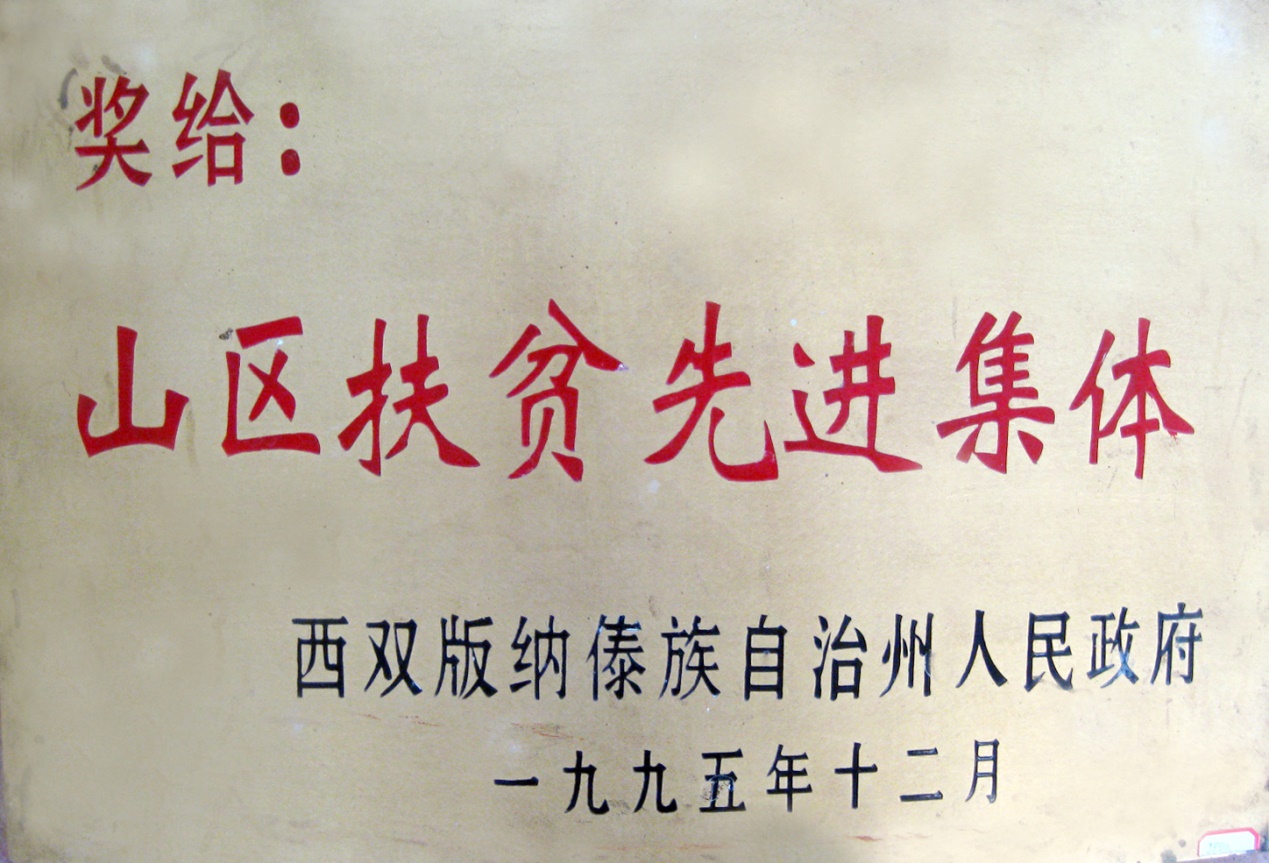 奖给：
山区扶贫先进集体
西双版纳傣族自治州人民政府
一九九五年十二月